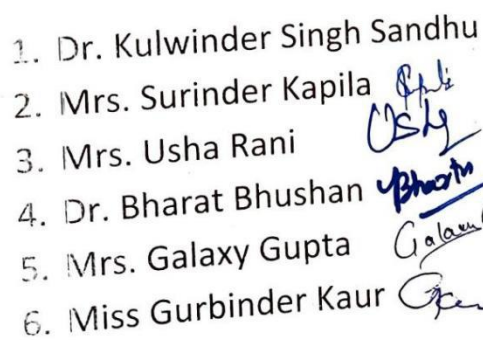 1. Dr. Kulwinder Singh Sandhu
2. Mrs. Surinder Kapila
3. Mrs. Usha Rani Usha
4. Dr. Bharat Bhushan Bharat
5. Mrs. Galaxy Gupta Galaxy
6. Miss Gurbinder Kaur